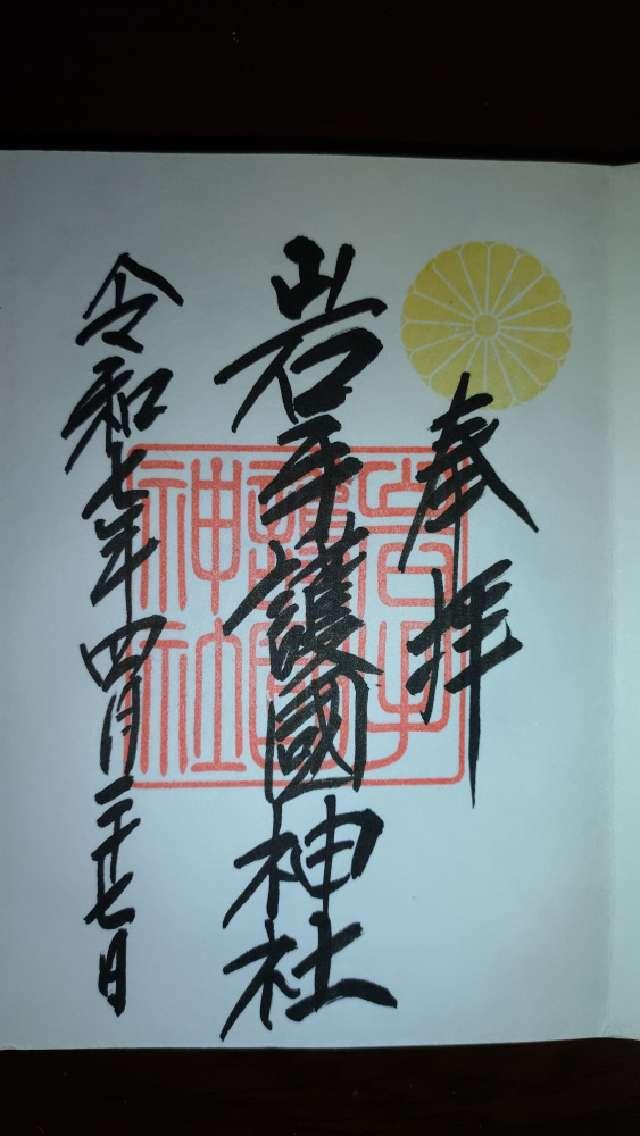 奉拝
岩手護國神社
令和七年四月二十七日
岩手
護國
神社